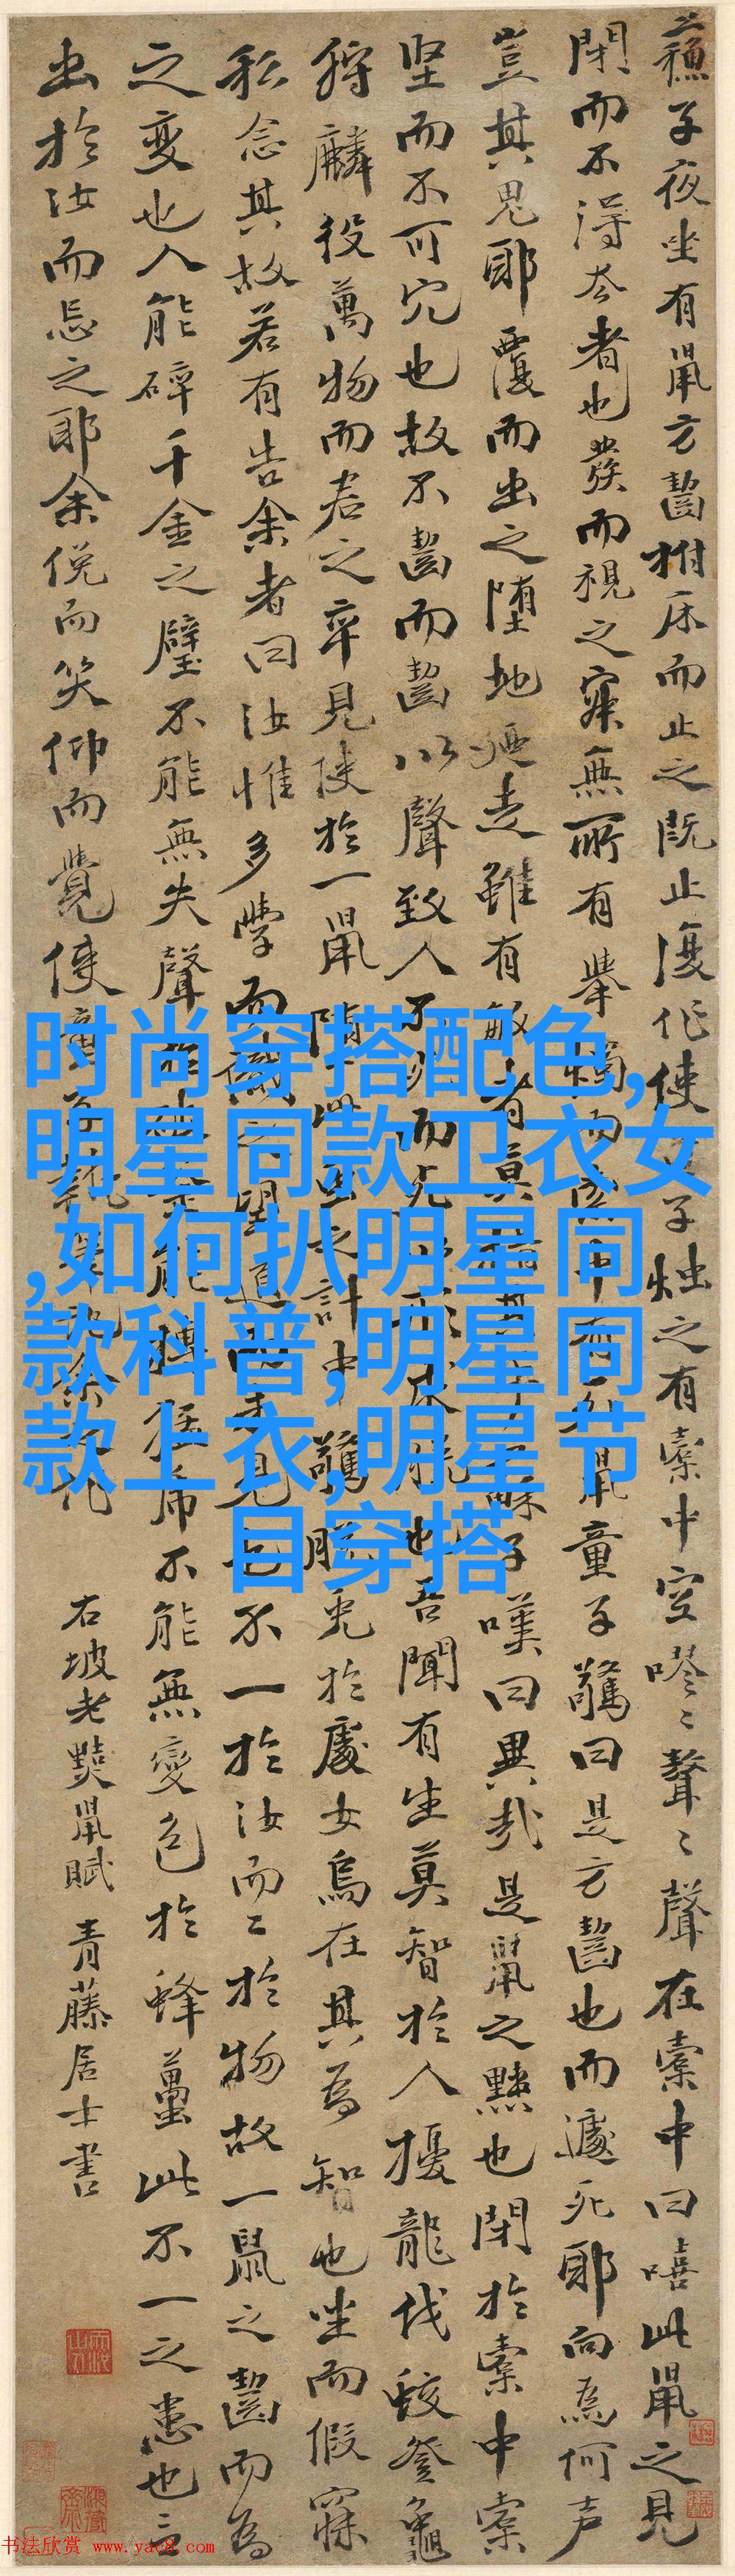 蘓子夜坐有鼠方齧拊床而止之既止復作使童子燭之有橐中空嘐〻聱〻聲在橐中曰嘻此鼠之見
閉而不得去者也發而視之寂無所有舉燭而索中有死鼠童子驚曰是方齧也而遽死耶向為何声
豈其鬼耶覆而出之墮地廼走雖有敏者莫措其手蘓子嘆曰異哉是鼠之黠也閉於橐中橐
坚而不可穴也故不齧而齧以聲致人不死而死以形求脱也吾聞有生莫智於人擾龍伐蛟登龜
狩麟役萬物而君之卒見使於一鼠墮此虫之計中驚脱兎於處女烏在其為智也坐而假寐
私念其故若有告余者曰汝惟多學而識之望道而未見也不一於汝而二於物故一鼠之齧而為
之变也人能碎千金之璧不能無失聲於破釜能搏猛虎不能無變色於蜂蠆此不一之患也言
出於汝而忘之耶余俛而笑仰而覺使童子執筆記余之作
右坡老黠鼠賦 青藤居士書
时尚穿搭配色,
明星同款卫衣女
,如何扒明星同
款科普,明星同
款上衣,明星节
目穿搭
书法欣赏 www.yac8.com